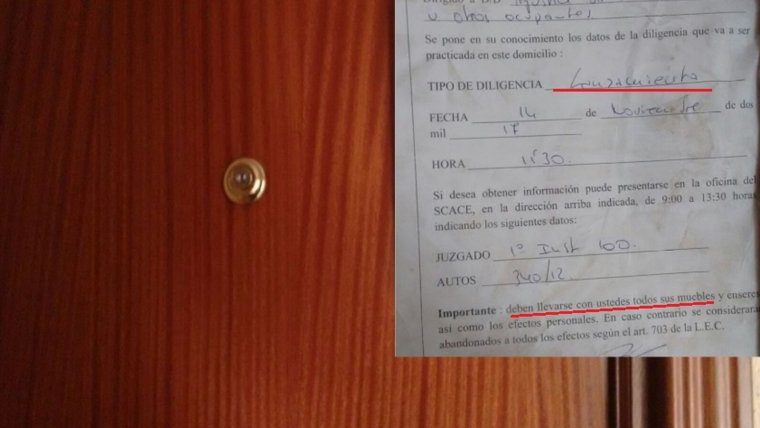 Dirigido a D/D
u otros ocupantes.
Se pone en su conocimiento los datos de la diligencia que va a ser
practicada en este domicilio :
TIPO DE DILIGENCIA Lanzamiento
FECHA 14 de Noviembre de dos
mil 17
HORA 11'30.
Si desea obtener información puede presentarse en la oficina del
SCACE, en la dirección arriba indicada, de 9:00 a 13:30 horas
indicando los siguientes datos:
JUZGADO 1º Inst 100.
AUTOS 340/12
Importante : deben llevarse con ustedes todos sus muebles y enseres
así como los efectos personales. En caso contrario se considerará
abandonados a todos los efectos según el art. 703 de la L.E.C.